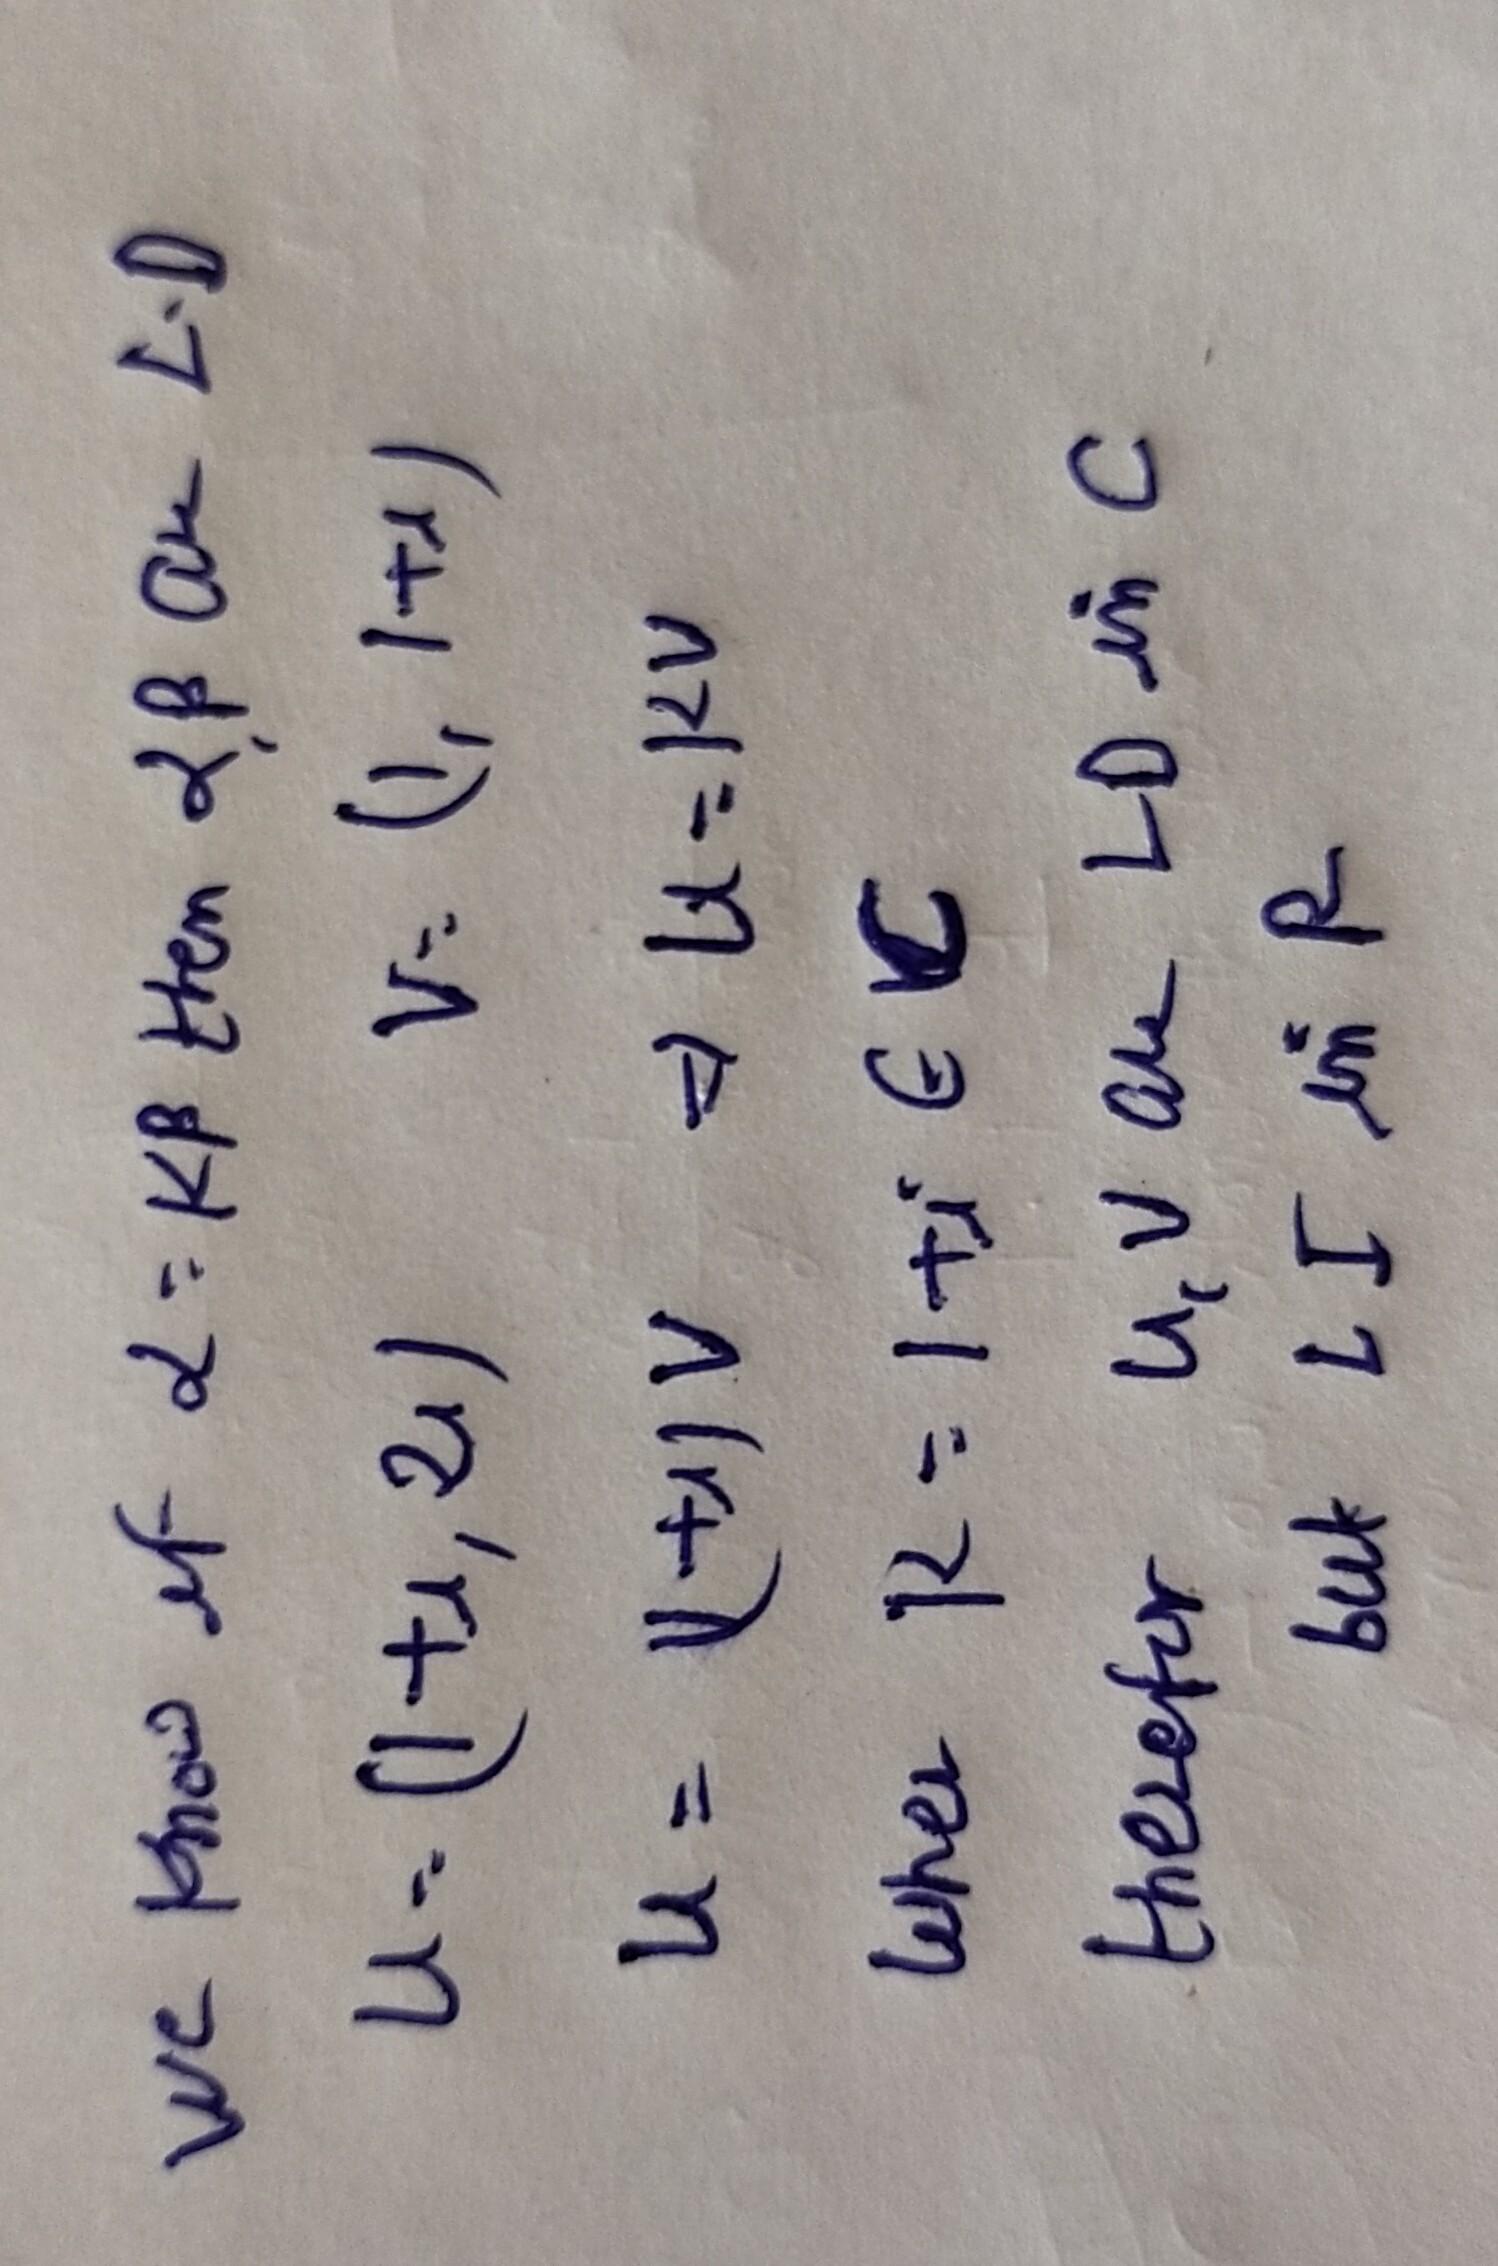 we know if α = Kβ then α, β are L.D
u = (1+i, 2i) v = (1, 1+i)
u = (1+i) v ⇒ u = kv
wher k = 1+i ∈ C
therefor u, v are LD in C
but L I in R